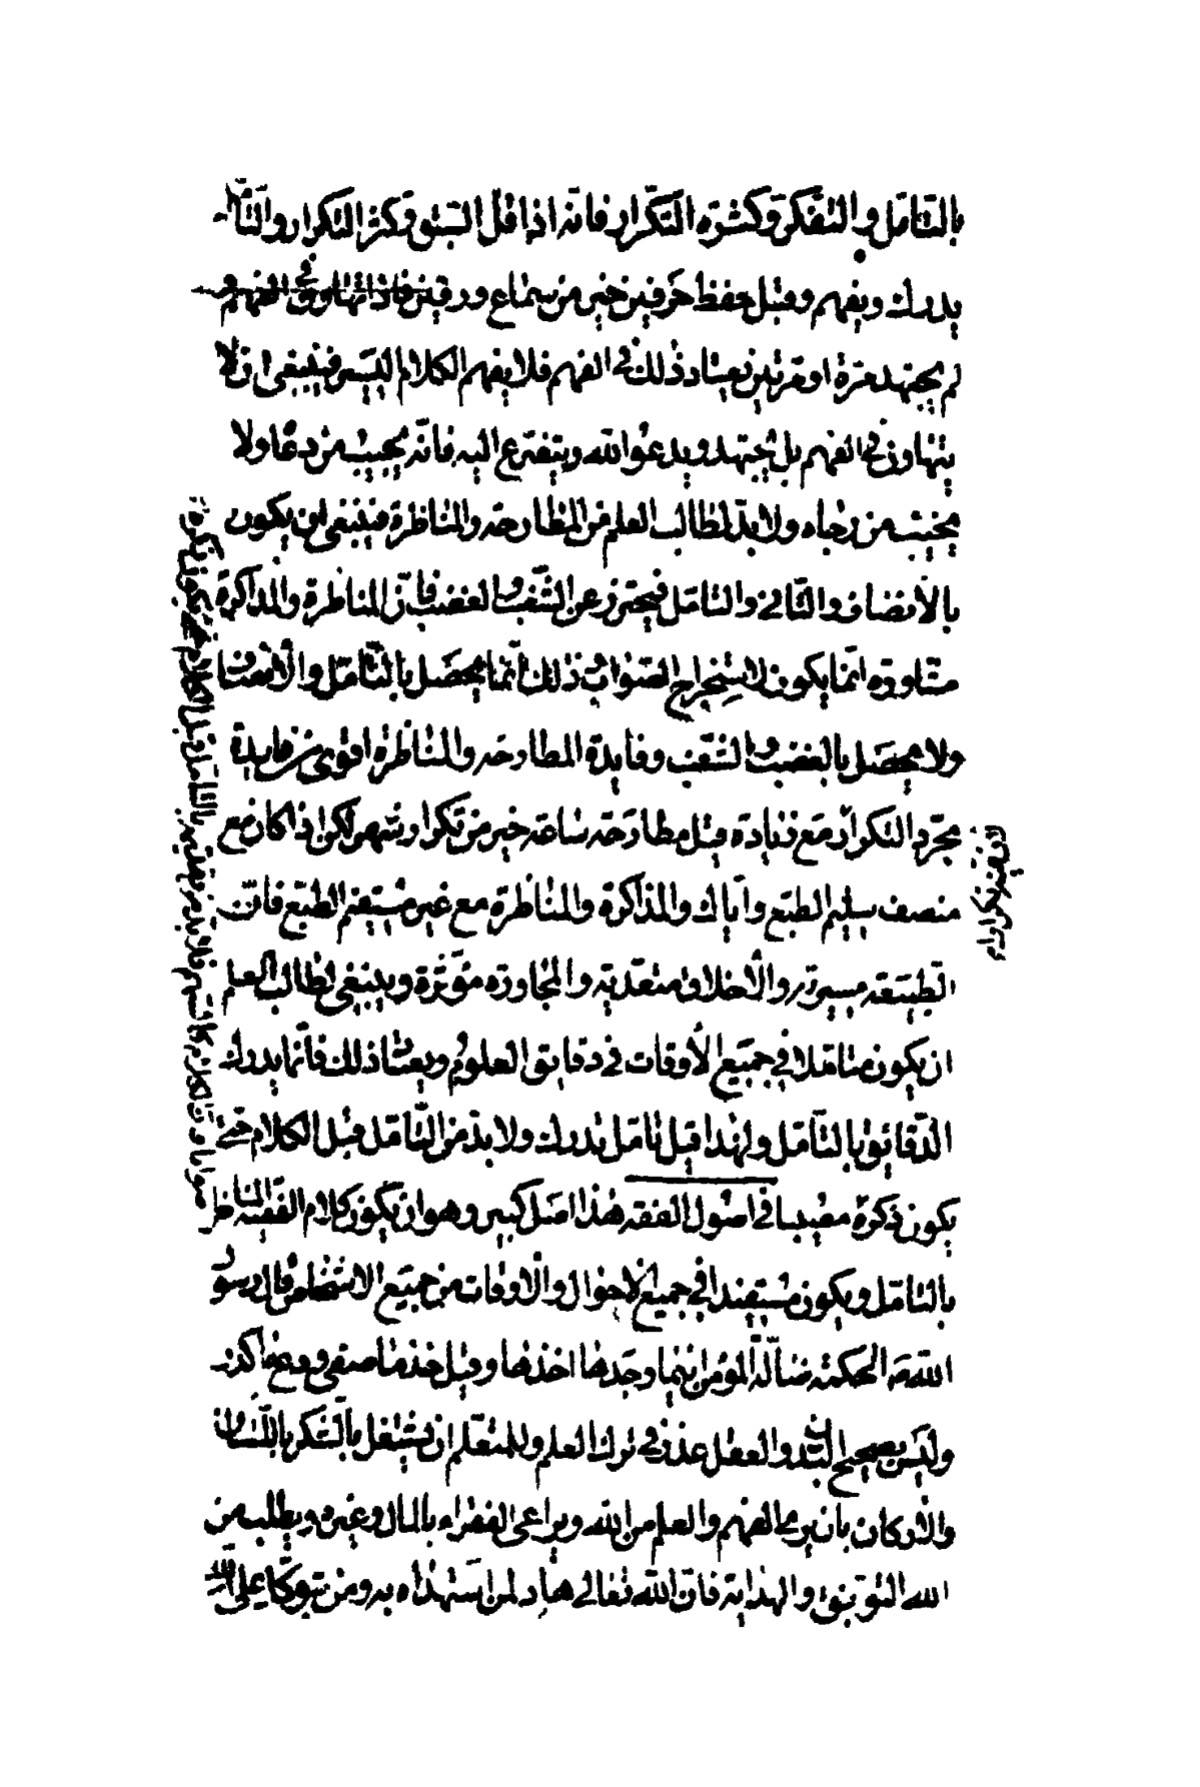 بالتأمل والتفكر وكثرة التكرار فانه اذا قل السبق وكثر التكرار والتأمل
يدرك ويفهم وقيل حفظ حرفين خير من سماع ورقين فاذا تهاون في الفهم و
لم يجتهد مرة او مرتين يعتاد ذلك في الفهم فلا يفهم الكلام اليسير فينبغى ان لا
يتهاون في الفهم بل يجتهد ويدعو الله ويتضرع اليه فانه يجيب من دعا ولا
يخيب من رجاه ولا بد لطالب العلم من المطارحة والمناظرة فينبغى ان يكون
بالانصاف والتانى والتامل فيحترز عن الشغب والغضب فان المناظرة والمذاكرة
مشاورة انما يكون لاستخراج الصواب ذلك انما يحصل بالتأمل والانصاف
ولا يحصل بالغضب والشغب وفايدة المطارحة والمناظرة اقوى من فايدة
مجرد التكرار مع زيادة قيل مطارحة ساعة خير من تكرار شهر لكن اذا كان مع
منصف سليم الطبع واياك والمذاكرة والمناظرة مع غير مستقيم الطبع فان
الطبيعة مسيرة والاخلاق متعدية والمجاورة مؤثرة وينبغى لطالب العلم
ان يكون متاملا في جميع الأوقات في دقايق العلوم ويعتاد ذلك فانما يدرك
الدقائق بالتأمل ولهذا قيل تأمل تدرك ولا بد من التأمل قبل الكلام حتى
يكون ذكره مصيبا في اصول الفقه هذا اصل كبير وهو ان يكون كلام الفقيه المناظر
بالتامل ويكون مستفيدا في جميع الاحوال والاوقات من جميع الاشخاص قال رسول
الله الحكمة ضالة المؤمن اينما وجدها اخذها وقيل خذ ما صفى ودع ما كدر
وليس بصحيح البدن والعقل عذر في ترك العلم وللمتعلم ان يشتغل بالشكر باللسان
والاركان بان يرى الفهم والعلم من الله ويراعى الفقراء بالمال وغيره ويطلب من
الله التوفيق والهداية فان الله تعالى هاد لمن استهداه به ومن يتوكل على الله
لان فيه تكرارا